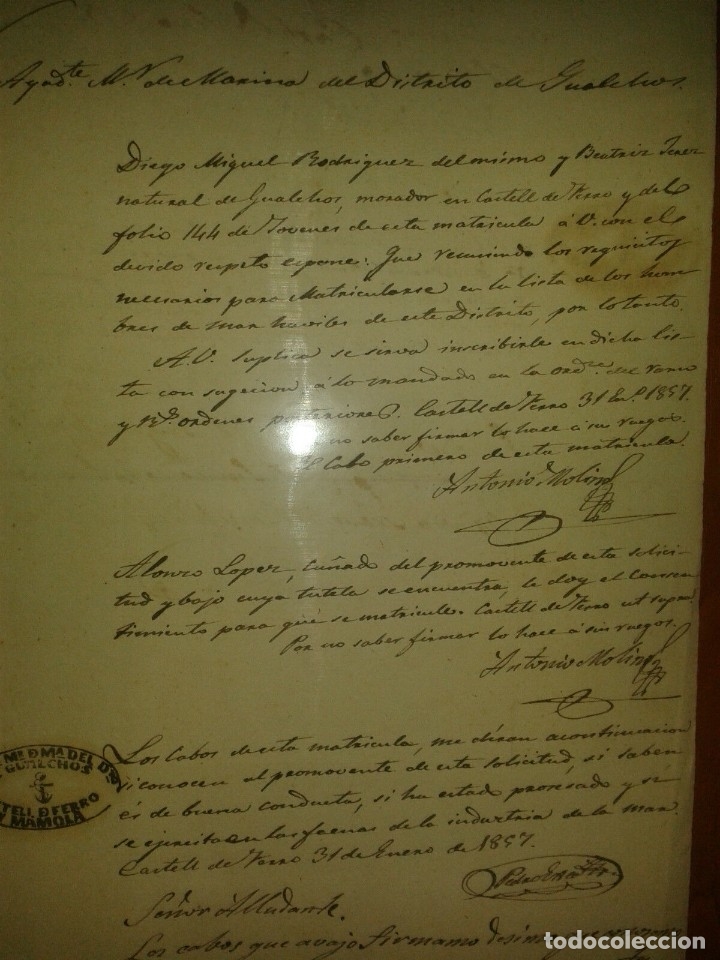 Ayud.te M.r de Marina del Distrito de Gualchos.
Diego Miguel Rodriguez del mismo y Beatriz
natural de Gualchos, morador en Castell de Ferro y del
folio 144 de Jovenes de esta matricula á V. con el
devido respeto espone: Que reuniendo los requicitos
necesarios para Matricularse en la lista de los hom
bres de mar haviles de este Distrito, por lo tanto.
A V. suplica se sirva inscribirle en dicha lis
ta con sugecion á lo mandado en la ord.za del ramo
y R.s ordenes posteriores. Castell de Ferro 31 En.o 1857.
no saber firmar lo hace á sus ruegos.
El Cabo primero de esta matricula.
Antonio Molina
Alonzo Lopez, cuñado del promovente de esta solici-
tud y bajo cuya tutela se encuentra, le doy el Consen
timiento para qué se matricule. Castell de Ferro ut supra
Por no saber firmar lo hace á sus ruegos.
Antonio Molina
Los Cabos de esta matricula, me diran acontinuacion
si conocen al promovente de esta solicitud, si saben
és de buena conducta, si ha estado procesado y si
se ejercita en las faenas de la industria de la mar.
Castell de Ferro 31 de Enero de 1857.
ME D MA DEL DS
GUALCHOS
CASTELL D FERRO
Y MAMOLA
Señor Alludante.
Los cabos que avajo firmamo
todocoleccion.net